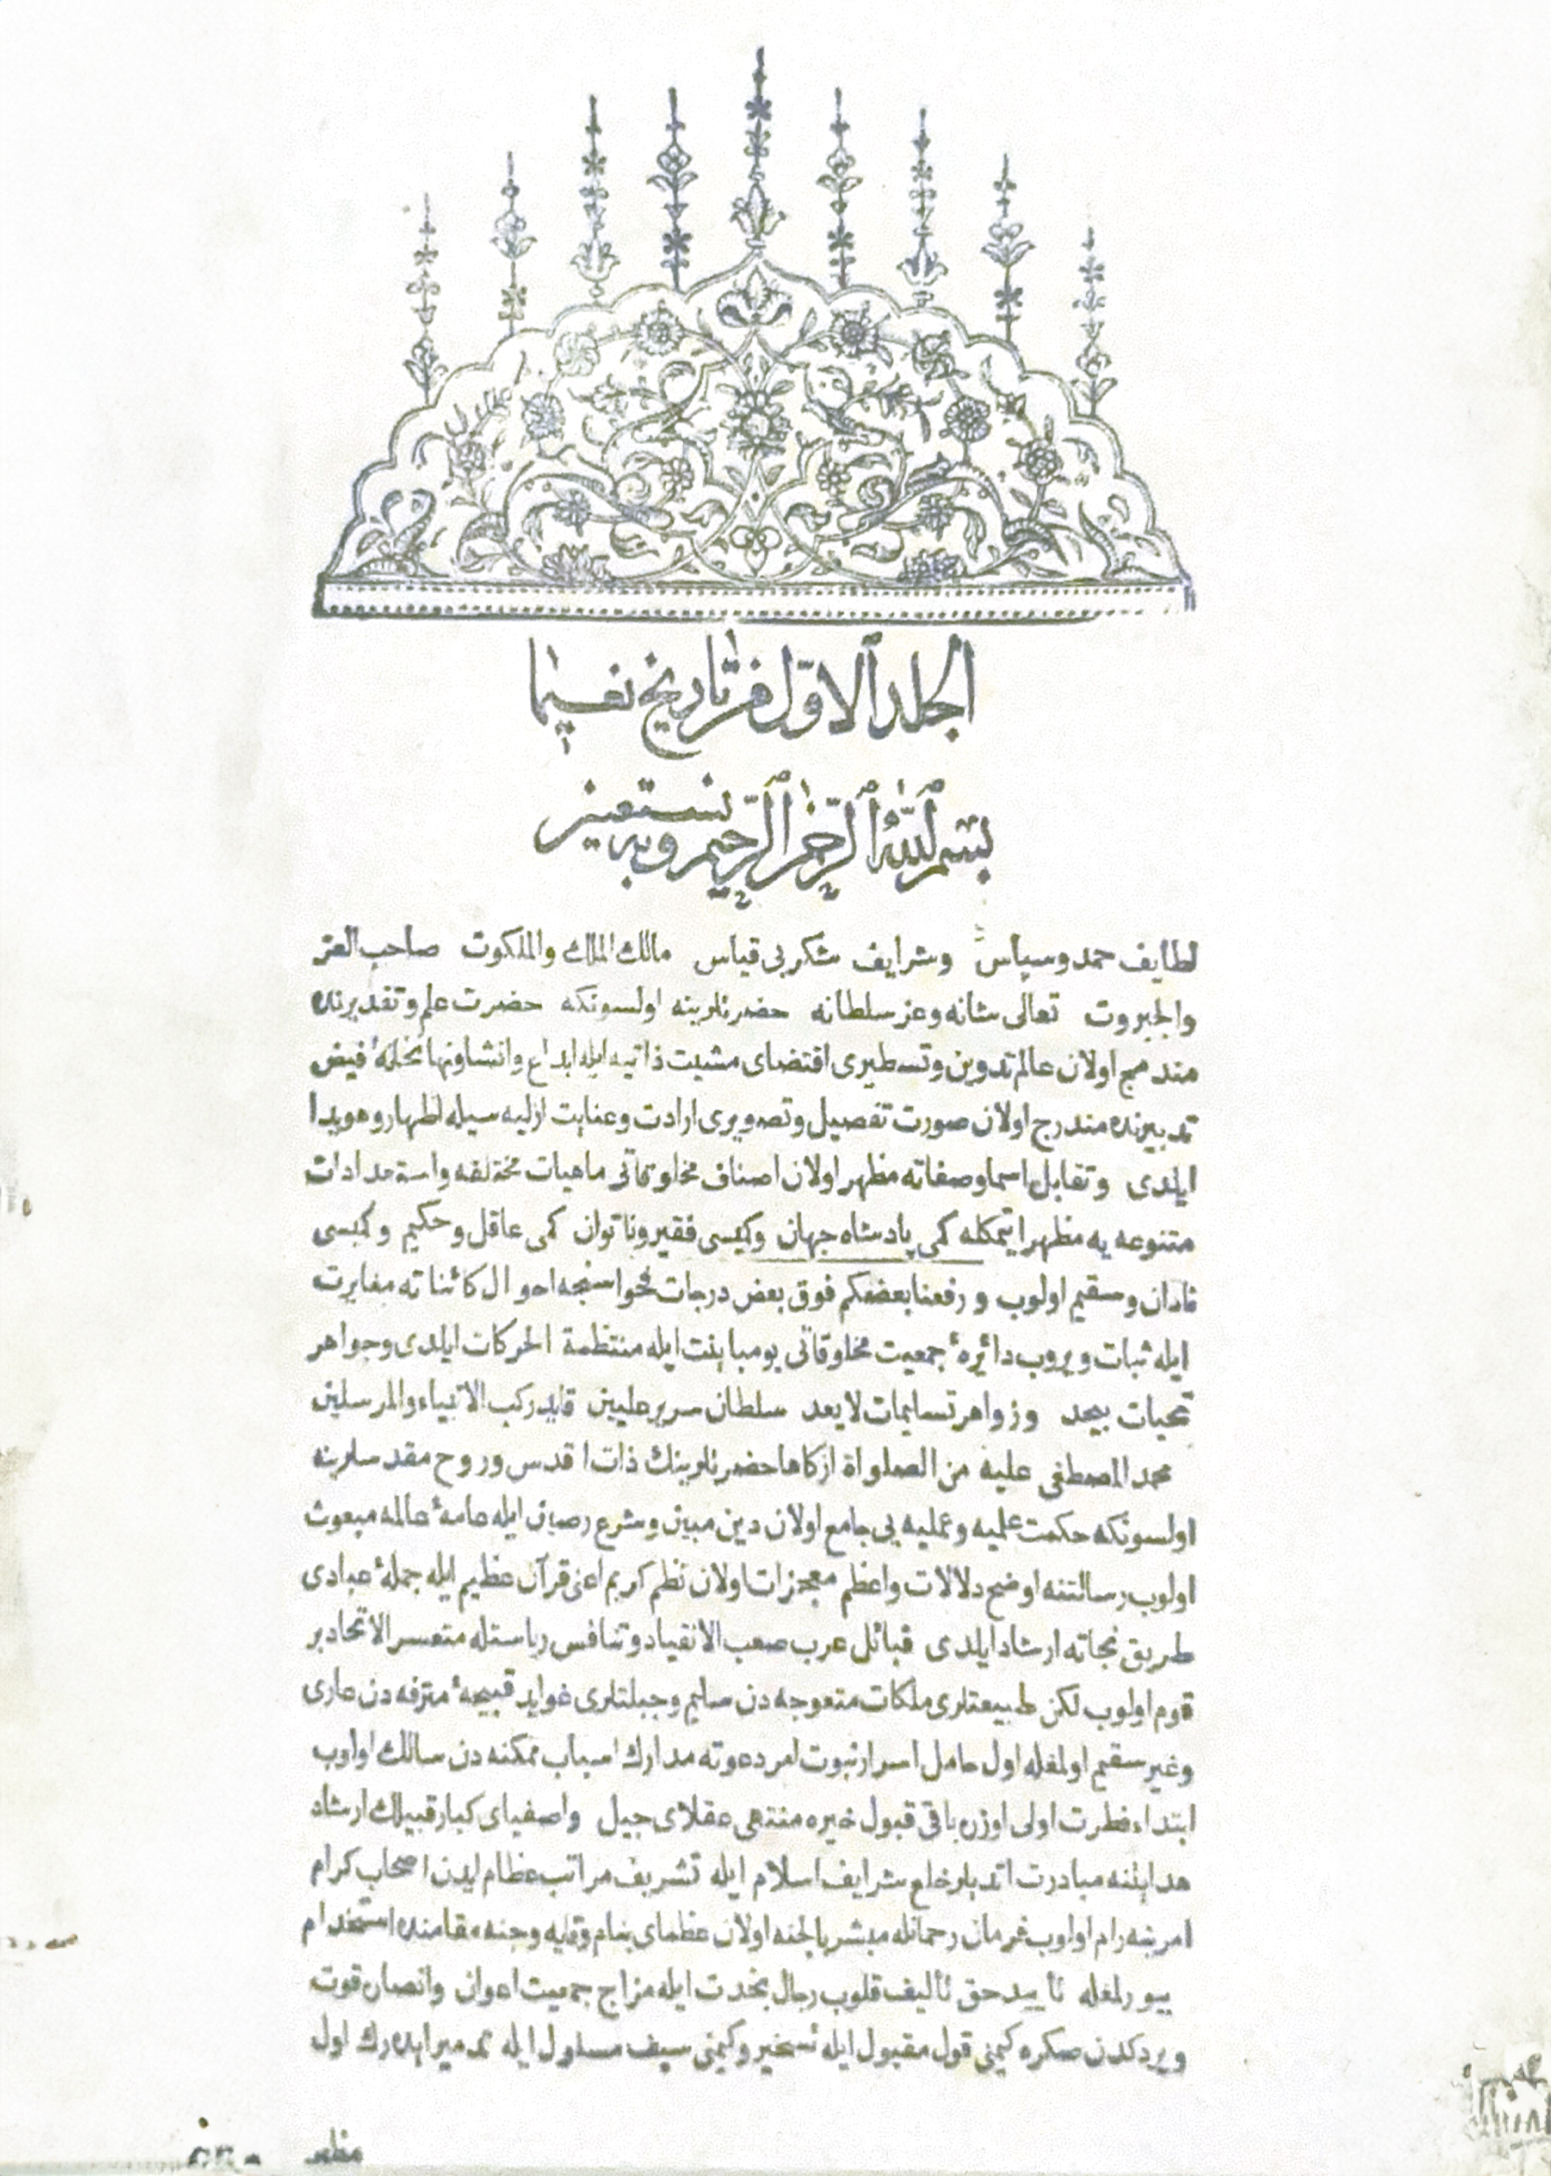 الجلد الاول من تاريخ نعيما
بسم الله الرحمن الرحيم وبه نستعين
لطايف حمد و سپاس وشرايف شكر بى قياس مالك الملك والملكوت صاحب العز
والجبروت تعالى شانه وعز سلطانه حضرتلرينه اولسونكه حضرت علم وتقديرنده
مندمج اولان عالم تدوين وتسطيرى اقتضاى مشيت ذاتيه ايله ابداع وانشا ونهانخانۀ فيض
تدبيرنده مندرج اولان صورت تفصيل وتصويرى ارادت وعنايت ازليه سيله اظهار وهويدا
ايلدى وتقابل اسما وصفاته مظهر اولان اصناف مخلوقاتى ماهيات مختلفه واستعدادات
متنوعه يه مظهر ايتمكله كمى پادشاه جهان وكيسى فقير وناتوان كمى عاقل وحكيم وكميسى
نادان وسقيم اولوب ورفعنا بعضكم فوق بعض درجات فحواسنجه احوال كائناته مغايرت
ايله ثبات ويروب دائرۀ جمعيت مخلوقاتى بو مباينت ايله منتظمة الحركات ايلدى وجواهر
تحيات بيحد وزواهر تسليمات لايعد سلطان سرير عليين قايد ركب الانبياء والمرسلين
محمد المصطفى عليه من الصلواة ازكاها حضرتلرينك ذات اقدس وروح مقدسلرينه
اولسونكه حكمت علميه وعمليه يى جامع اولان دين مبين وشرع رصين ايله عامۀ عالمه مبعوث
اولوب رسالتنه اوضح دلالات واعظم معجزات اولان نظم كريم اعنى قرآن عظيم ايله جملۀ عبادى
طريق نجاته ارشاد ايلدى قبائل عرب صعب الانقياد وتنافس رياستله متعسر الاتحاد بر
قوم اولوب لكن طبيعتلرى ملكات متعوجه دن سليم وجبلتلرى عوايد قبيحۀ مترفه دن عارى
وغير سقيم اولمغله اول حامل اسرار نبوت امر دعوته مدارك اسباب ممكنه دن سالك اولوب
ابتداء فطرت اولى اوزره باقى قبول خيره منتهى عقلاى جيل واصفياى كبار قبيلك ارشاد
هدايتنه مبادرت اتديلر خلع شرايف اسلام ايله تشريف مراتب عظام ايدن اصحاب كرام
امرينه رام اولوب فرمان رحمانله مبشر بالجنه اولان عظماى بنام وقايه وجنه مقامنده استخدام
بيورلمغله تاييد حق تأليف قلوب رجال بخدت ايله مزاج جمعيت اعوان وانصاره قوت
ويردكدن صكره كيمنى قول مقبول ايله تسخير وكيمنى سيف مسلول ايله تدمير ايده رك اول